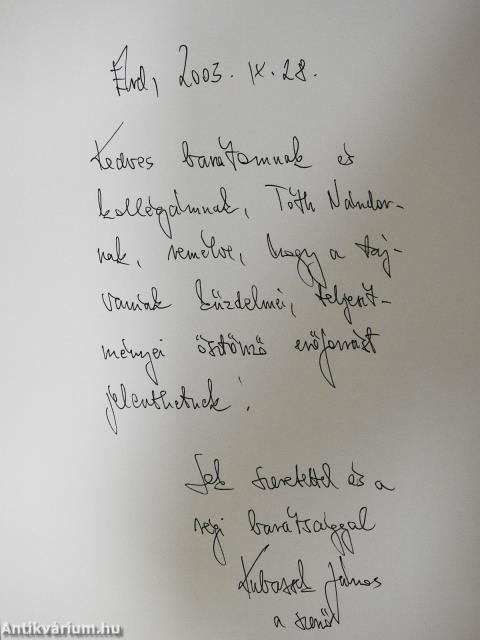 Érd, 2003. IX. 28.
Kedves barátomnak és
kollégámnak, Tóth Nándor-
nak, remélve, hogy a táj-
vaniak küzdelmei, teljesít-
ményei ösztönző erőforrást
jelenthetnek!
Sok szeretettel és a
régi barátsággal
Kubassek János
a szerző
Antikvárium.hu